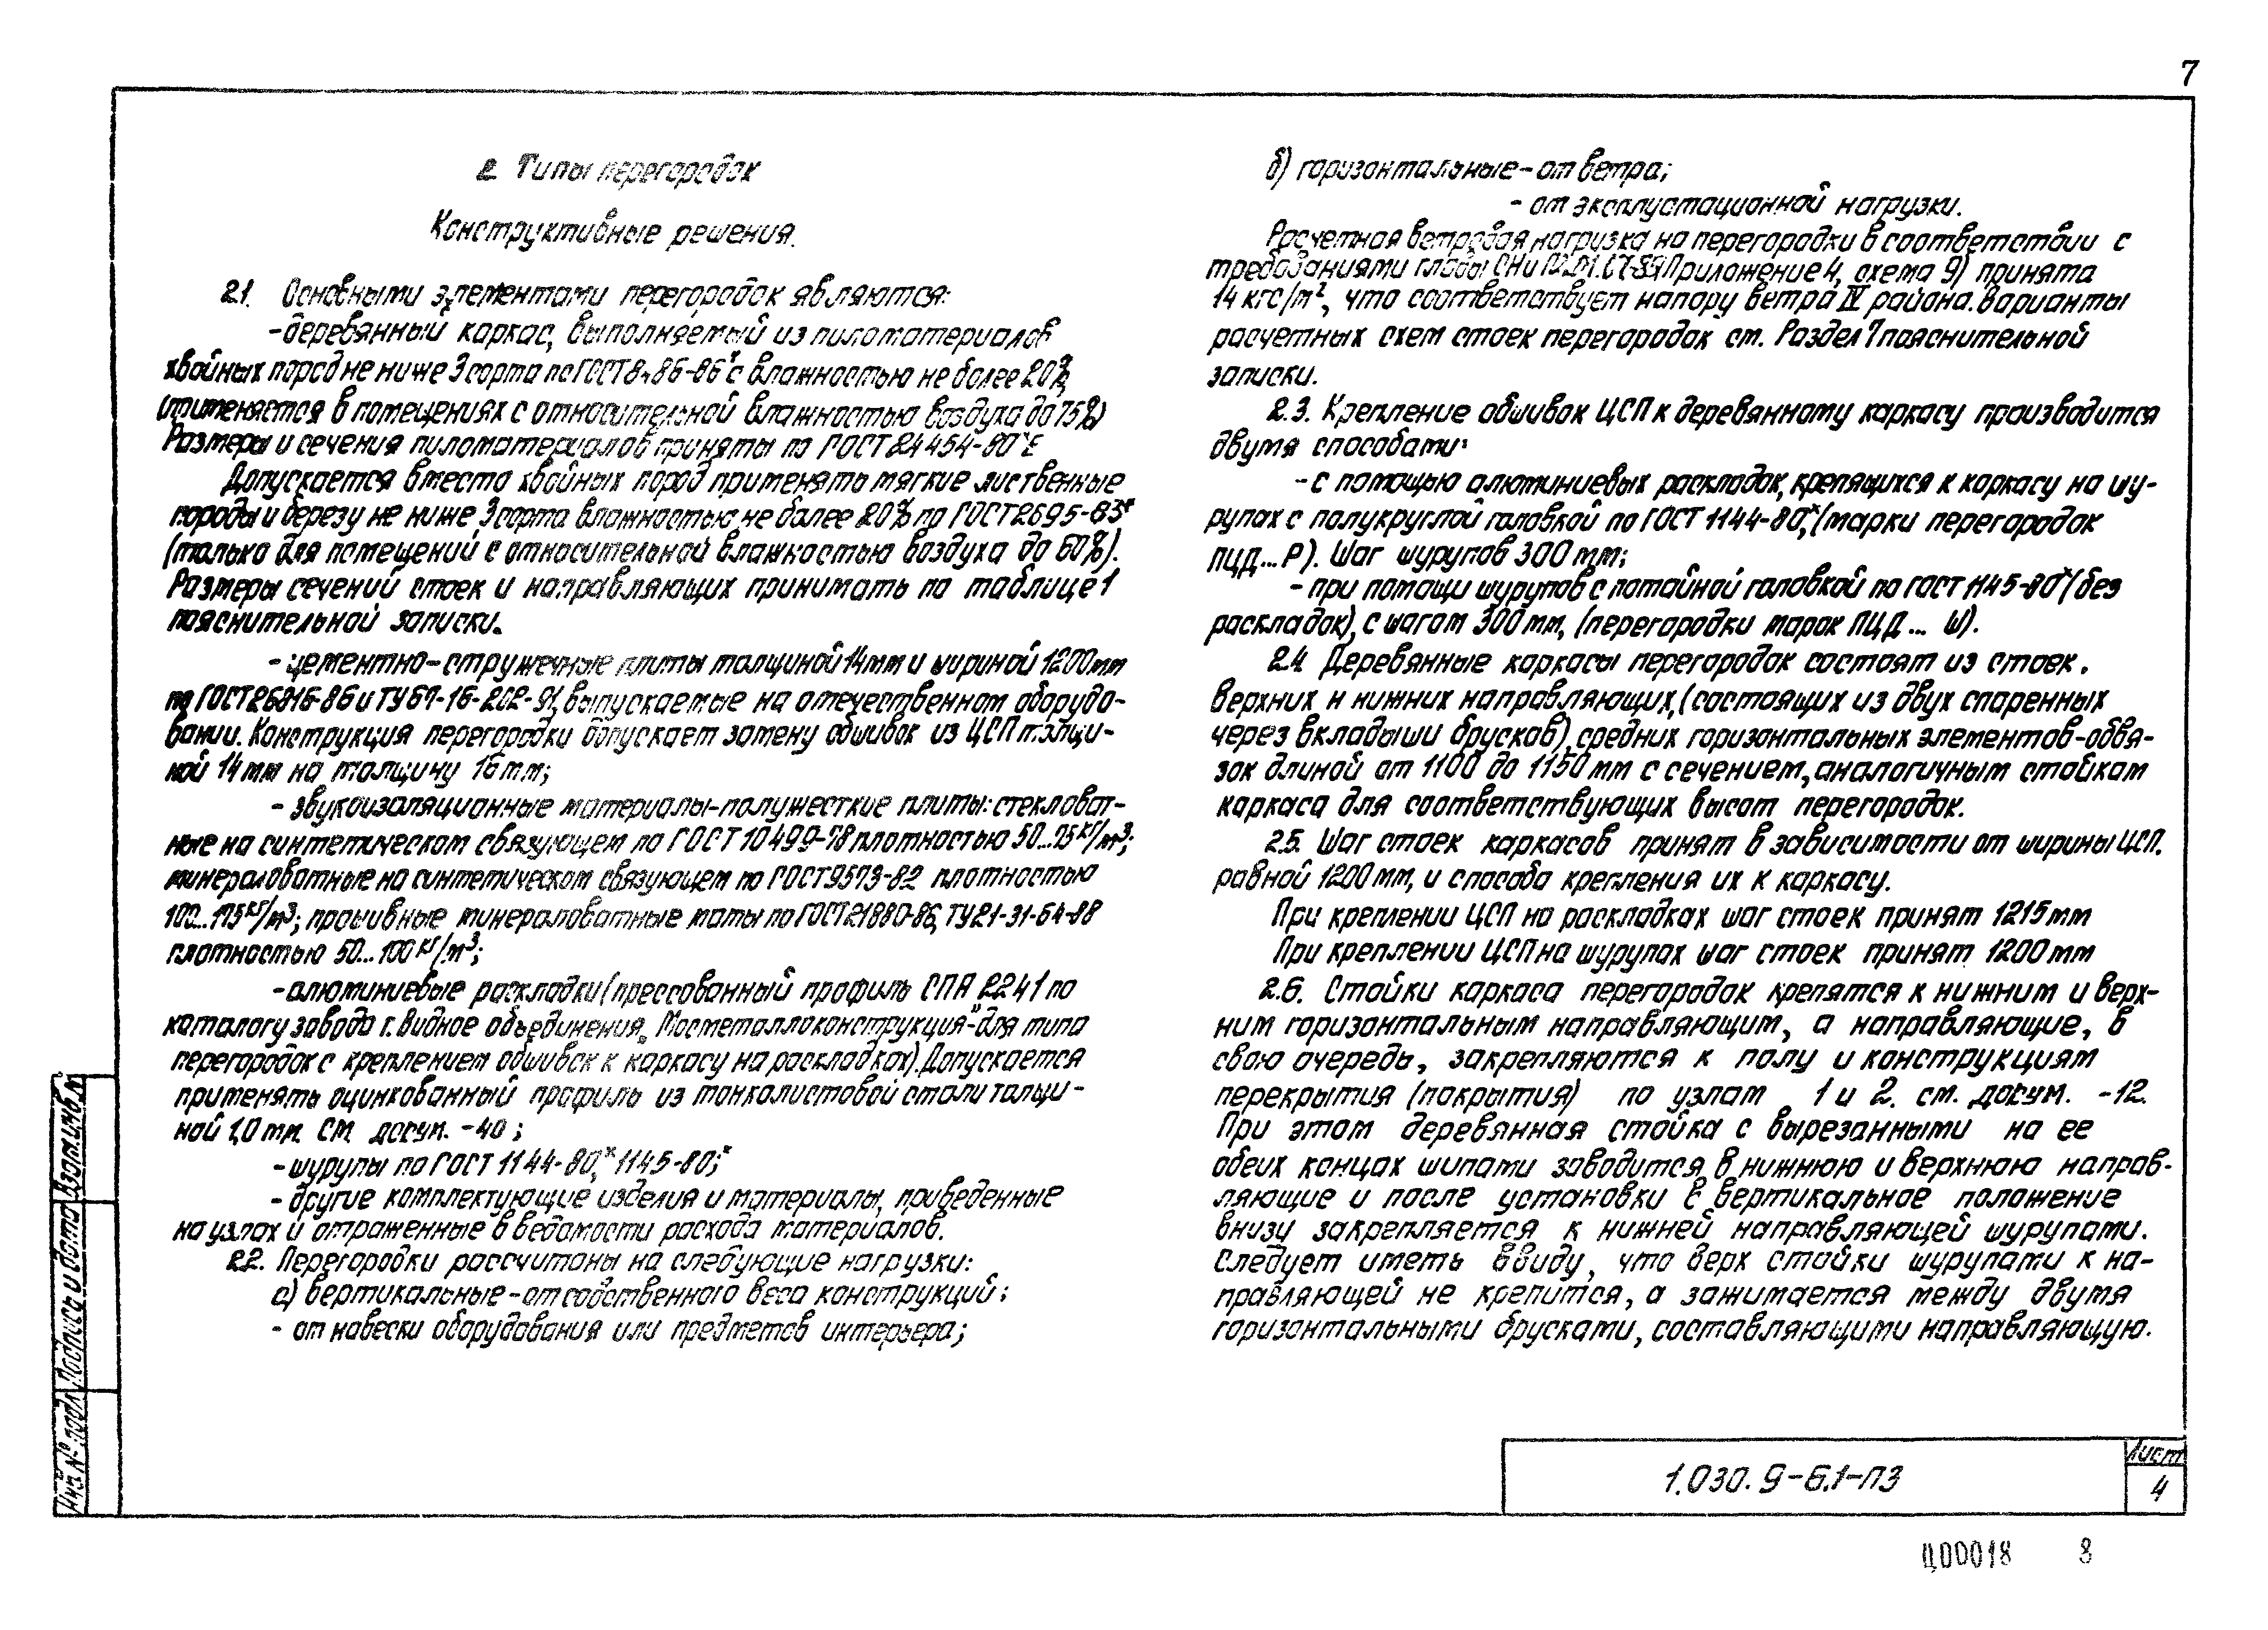 7
2 Типы перегородок
Конструктивные решения.
2.1. Основными элементами перегородок являются:
-деревянный каркас, выполняемый из пиломатериалов
хвойных пород не ниже 3 сорта по ГОСТ 8486-86* с влажностью не более 20%,
(применяется в помещениях с относительной влажностью воздуха до 75%)
Размеры и сечения пиломатериалов приняты по ГОСТ 24454-80*Е
Допускается вместо хвойных пород применять мягкие лиственные
породы и березу не ниже 3 сорта влажностью не более 20% по ГОСТ 2695-83*
(только для помещений с относительной влажностью воздуха до 60%).
Размеры сечений стоек и направляющих принимать по таблице 1
пояснительной записки.
-цементно-стружечные плиты толщиной 14мм и шириной 1200мм
по ГОСТ 26816-86 и ТУ 67-16-202-91, выпускаемые на отечественном оборудо-
вании. Конструкция перегородки допускает замену обшивок из ЦСП толщи-
ной 14мм на толщину 16мм;
- звукоизоляционные материалы-полужесткие плиты: стекловат-
ные на синтетическом связующем по ГОСТ 10499-78 плотностью 50...75 кг/м³;
минераловатные на синтетическом связующем по ГОСТ 9573-82 плотностью
100...175 кг/м³; прошивные минераловатные маты по ГОСТ 21880-86, ТУ 21-31-64-88
плотностью 50...100 кг/м³;
-алюминиевые раскладки (прессованный профиль СПА 2241 по
каталогу завода г. Видное объединения „Мосметаллоконструкция"-для типа
перегородок с креплением обшивок к каркасу на раскладках). Допускается
применять оцинкованный профиль из тонколистовой стали толщи-
ной 1,0 мм. См. докум. -40;
-шурупы по ГОСТ 1144-80,* 1145-80;*
- другие комплектующие изделия и материалы, приведенные
на узлах и отраженные в ведомости расхода материалов.
2.2. Перегородки рассчитаны на следующие нагрузки:
а) вертикальные-от собственного веса конструкций;
- от навески оборудования или предметов интерьера;
б) горизонтальные-от ветра;
- от эксплуатационной нагрузки.
Расчетная ветровая нагрузка на перегородки в соответствии с
требованиями главы СНиП 2.01.07-85 (Приложение 4, схема 9) принята
14 кгс/м², что соответствует напору ветра IV района. Варианты
расчетных схем стоек перегородок см. Раздел 7 пояснительной
записки.
2.3. Крепление обшивок ЦСП к деревянному каркасу производится
двумя способами:
-с помощью алюминиевых раскладок, крепящихся к каркасу на шу-
рупах с полукруглой головкой по ГОСТ 1144-80*, (марки перегородок
ПЦД...Р). Шаг шурупов 300 мм;
-при помощи шурупов с потайной головкой по ГОСТ 1145-80* (без
раскладок), с шагом 300 мм, (перегородки марок ПЦД... Ш).
2.4. Деревянные каркасы перегородок состоят из стоек,
верхних и нижних направляющих, (состоящих из двух спаренных
через вкладыши брусков), средних горизонтальных элементов-обвя-
зок длиной от 1100 до 1150 мм с сечением, аналогичным стойкам
каркаса для соответствующих высот перегородок.
2.5. Шаг стоек каркасов принят в зависимости от ширины ЦСП,
равной 1200 мм, и способа крепления их к каркасу.
При креплении ЦСП на раскладках шаг стоек принят 1215 мм
При креплении ЦСП на шурупах шаг стоек принят 1200 мм
2.6. Стойки каркаса перегородок крепятся к нижним и верх-
ним горизонтальным направляющим, а направляющие, в
свою очередь, закрепляются к полу и конструкциям
перекрытия (покрытия) по узлам 1 и 2. см. докум. -12.
При этом деревянная стойка с вырезанными на ее
обеих концах шипами заводится в нижнюю и верхнюю направ-
ляющие и после установки в вертикальное положение
внизу закрепляется к нижней направляющей шурупами.
Следует иметь ввиду, что верх стойки шурупами к на-
правляющей не крепится, а зажимается между двумя
горизонтальными брусками, составляющими направляющую.
Инв. № подл. Подпись и дата Взам. инв. №
1.030.9-6.1-ПЗ
Лист
4
Ц00018 8